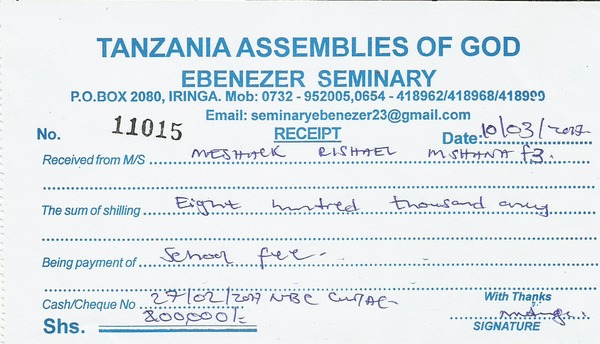 TANZANIA ASSEMBLIES OF GOD
EBENEZER SEMINARY
P.O.BOX 2080, IRINGA. Mob: 0732 - 952005,0654 - 418962/418968/418990
Email: seminaryebenezer23@gmail.com
No. 11015 RECEIPT Date: 10/03/2017
Received from M/S MESHACK RISHAEL MSHANA F3.
The sum of shilling Eight hundred thousand only
Being payment of School fee
Cash/Cheque No 27/02/2017 NBC With Thanks
Shs. 800,000/= SIGNATURE